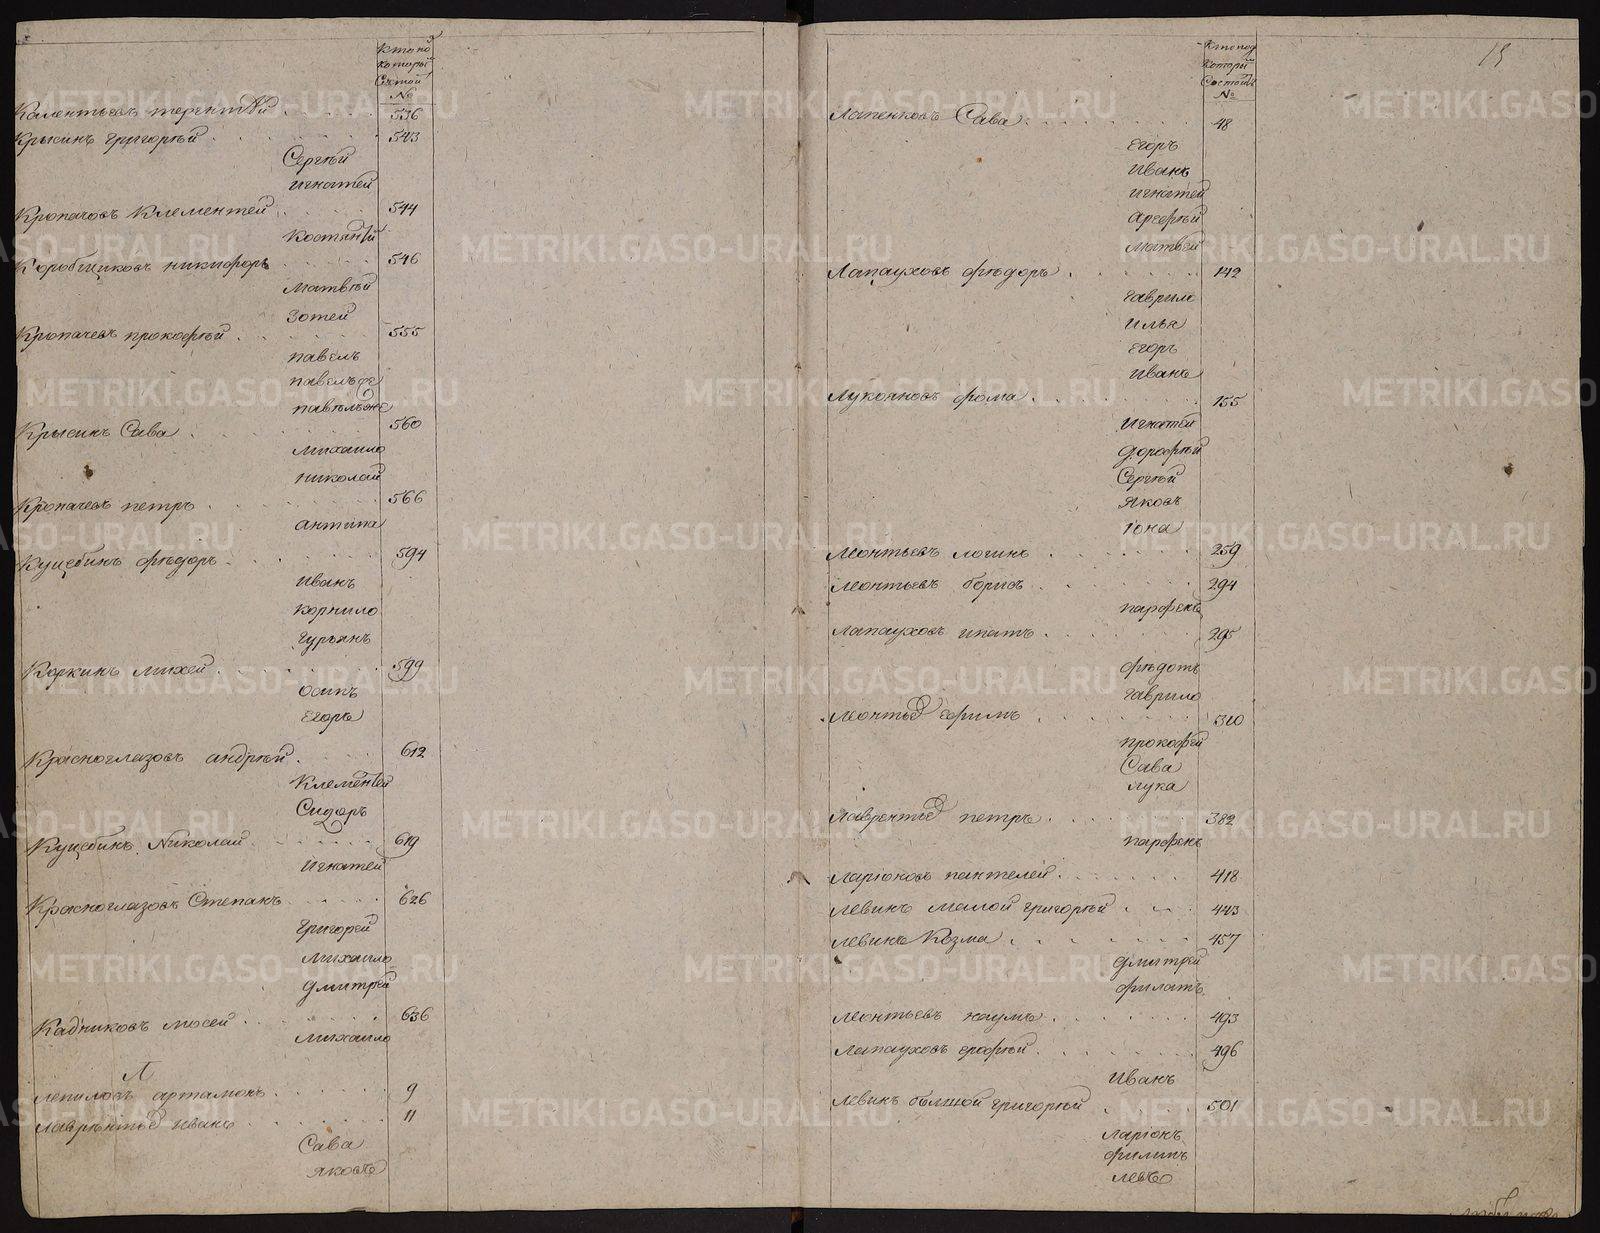 Кто под
которы
состои
№
Калентьевъ терентей 536
Крысинъ григорьей 543
Сергъй
игнатей
Кропачовъ Клементей 544
костянтй
Коробщиковъ никифоръ 546
матвъй
зотей
Кропачевъ прокофьей 555
павелъ
павелъ же
павелъ же
Крысинъ Сава 560
михаило
николай
Кропачевъ петръ 566
антипа
Кущебинъ фъдоръ 594
иванъ
корнило
гурьянъ
Коркинъ михей 599
осипъ
егоръ
Красноглазовъ андръй 612
Клементей
Сидоръ
Кущебинъ Николай 619
Игнатей
Красноглазовъ Степанъ 626
григорей
михаило
дмитрей
Кадниковъ мосей 636
михаило
Л
лепиловъ артамонъ 9
лаврѣнтьев иванъ 11
Сава
яковъ
15
Кто под
которы
состоитъ
№
Лапенковъ Сава 48
егоръ
иванъ
игнатей
арефьей
матвей
Лапауховъ фъдоръ 142
гаврило
илья
егоръ
иванъ
Лукояновъ фома 155
игнатей
дорофъй
Сергъй
яковъ
іона
леонтьевъ логинъ 259
леонтьевъ борисъ 294
парфенъ
Лапауховъ ипатъ 295
фъдотъ
гаврило
леонтьев ефимъ 310
прокофей
Сава
лука
лаврентьев петръ 382
парфенъ
ларіоновъ пантелей 418
левинъ малой григорьей 443
левинъ Козма 457
дмитрей
филатъ
леонтьевъ наумъ 493
лапауховъ ерофъй 496
Иванъ
левинъ болшой григорьей 501
ларіонъ
филипъ
левъ
METRIKI.GASO-URAL.RU